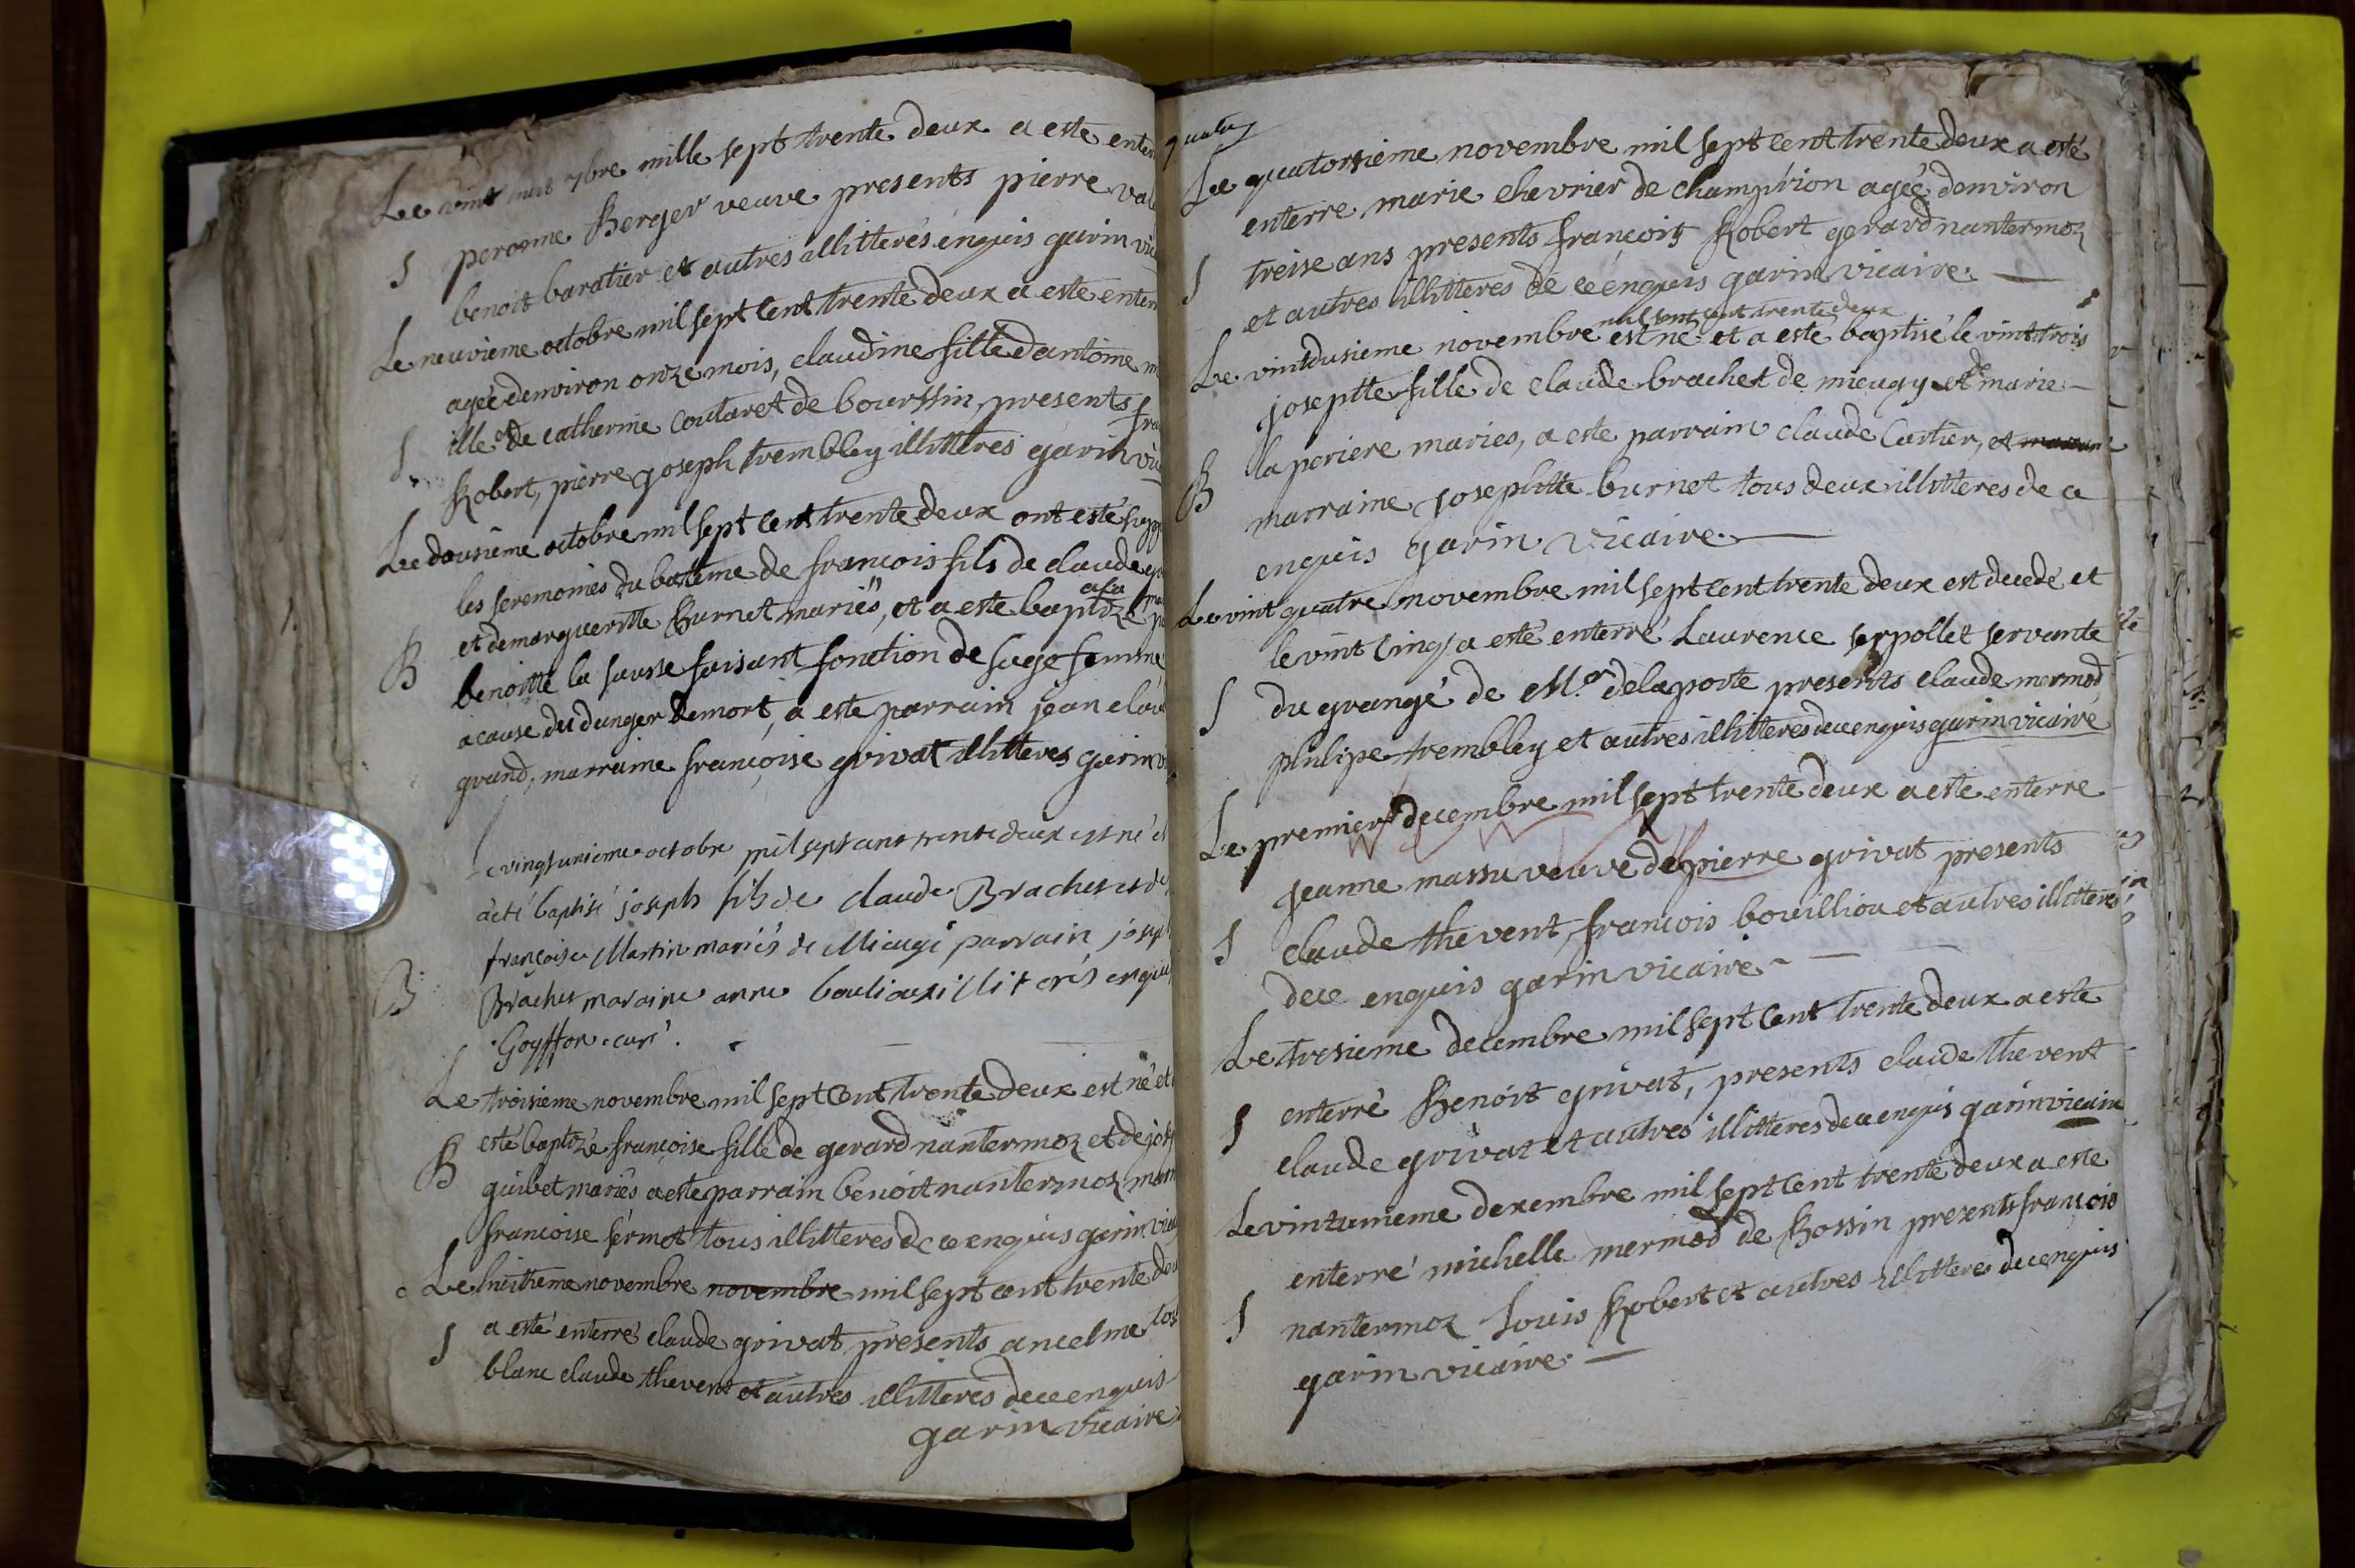 Le vint huit 7bre mille sept trente deux a este enter
S peronne Berger veuve presents pierre val
benoit baratier et autres illitterés enquis garin vic
Le neuvieme octobre mil sept cent trente deux a este enter
agée denviron onze mois, claudine fille dantoine m
S ille et de catherine coutaret de bourssin presents fra
Robert, pierre joseph trembley illitteres garin vic
Le dousieme octobre mil sept cent trente deux ont esté supp
les seremonies du bateme de francois fils de claude
et de margueritte Burnet mariés, et a este baptizé a la
B benoitte la sausse faisant fonction de sage femme
a cause du danger de mort, a este parrain jean clau
grand, marraine françoise grivat illitteres garin v
Le vingtunieme octobre mil sept cent trente deux est né et
a eté baptisé joseph fils de claude Brachet et de
françoise Martin mariés de Mieugi parrain josep
B Brachet maraine anne bouliou illiterés enqui
Goyffon curé.
Le troisieme novembre mil sept cent trente deux est né et
esté baptizé françoise fille de gerard nantermoz et de jos
B guibet mariés a este parrain benoit nantermoz marr
francoise sermet tous illitteres de ce enquis garin vica
Le huitieme novembre novembre mil sept cent trente deu
S a esté enterré claude grivat presents ancelme tos
blanc claude thevent et autres illitteres de ce enquis
garin vicaire
quator
Le quatorsieme novembre mil sept cent trente deux a esté
enterre marie chevrier de chamption agée denviron
S treise ans presents françois Robert gerard nantermoz
et autres illitteres de ce enquis garin vicaire.
mil sept cent trente deux
Le vintdusieme novembre est né et a esté baptisé le vint trois
joseptte fille de claude brachet de mieugy et de marie
B la periere maries, a este parrain claude Cartier, et marraine
marraine josephtte burnet tous deux illitteres de ce
enquis garin vicaire.
Le vint quatre novembre mil sept cent trente deux est decedé et
le vint cinq a esté enterré Laurence serpollet servante
S du grangé de Mr. delaporte presents claude mermod
philipe trembley et autres illitteres de ce enquis garin vicaire
Le premier decembre mil sept trente deux a este enterre
jeanne massu veuve de pierre grivat presents
S claude thevent, francois bouilliou et autres illitteres
de ce enquis garin vicaire
Le tresieme decembre mil sept cent trente deux a este
S enterré Benoit grivat, presents claude thevent
claude grivat et autres illitteres de ce enquis garin vicaire
Le vintunieme decembre mil sept cent trente deux a este
enterré michelle mermod de Bossin presents francois
S nantermoz Louis Robert et autres illitteres de ce enquis
garin vicaire